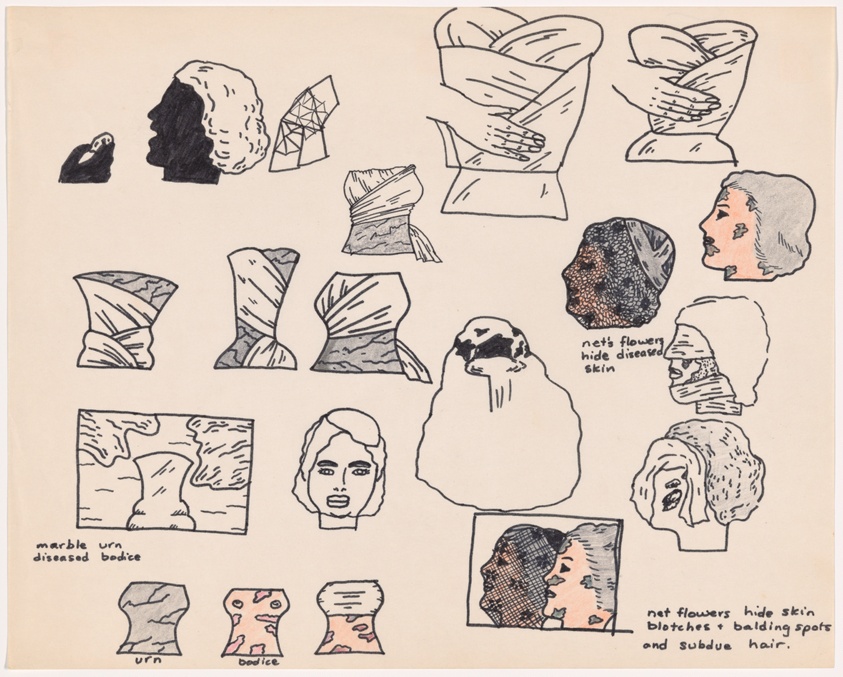 net's flowers
hide diseased
skin
marble urn
diseased bodice
net flowers hide skin
blotches + balding spots
and subdue hair.
urn
bodice